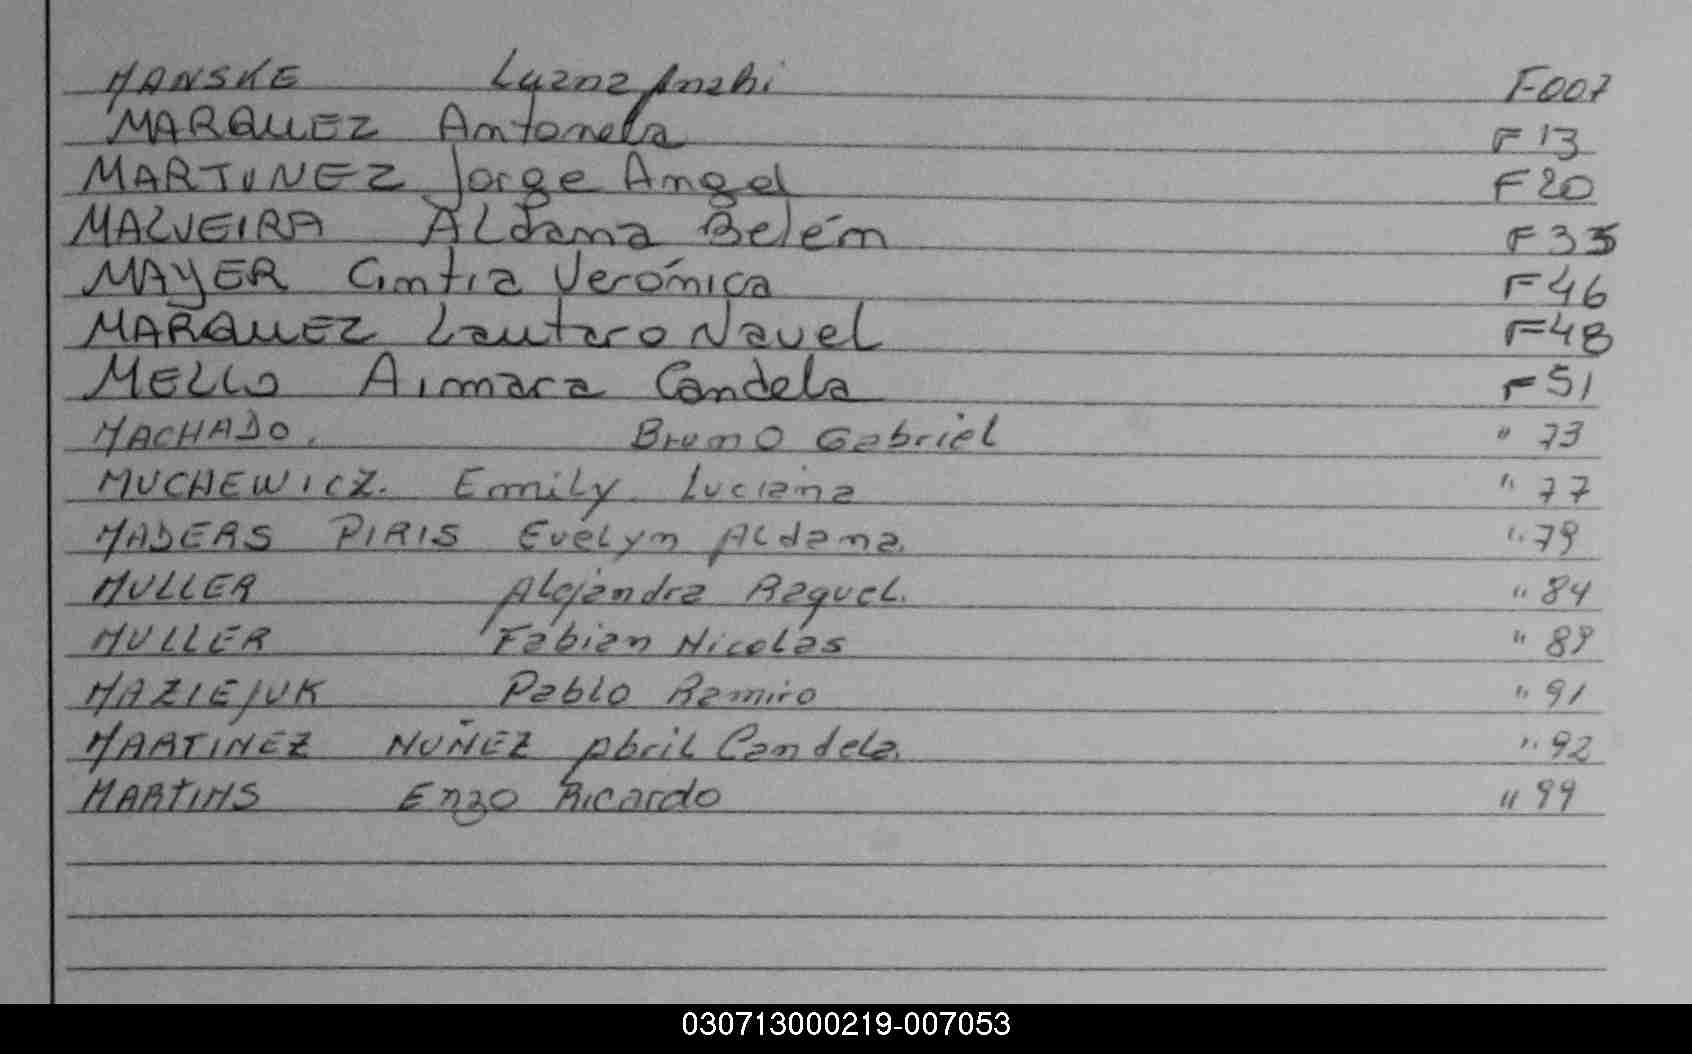 MANSKE Luana Anahi F-007
MARQUEZ Antonela F 13
MARTINEZ Jorge Angel F 20
MALVEIRA ALdana Belén F 35
MAYER Cintia Verónica F 46
MARQUEZ Lautaro Nauel F 48
MELLO Aimara Candela F 51
MACHADO. Bruno Gabriel " 73
MUCHEWICZ. Emily Luciana " 77
MADERS PIRIS Evelyn ALdana. " 79
MULLER Alejandra Raquel. " 84
MULLER Fabian Nicolas " 89
MAZIEJUK Pablo Ramiro " 91
MARTINEZ NUÑEZ Abril Candela. " 92
MARTINS Enzo Ricardo " 99
030713000219-007053